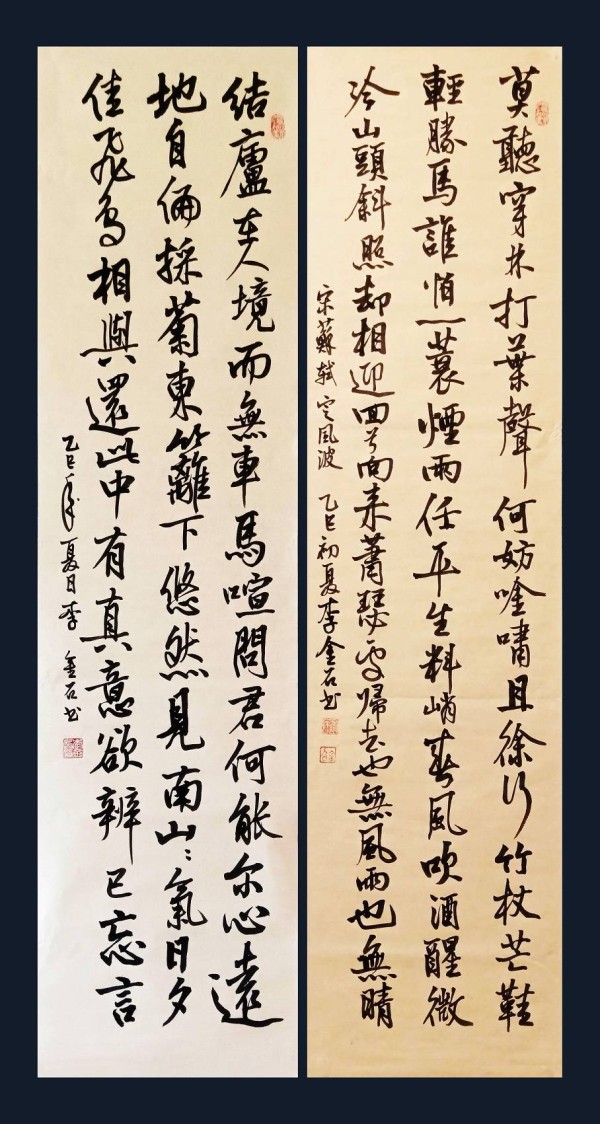 莫聽穿林打葉聲何妨唫嘯且徐行竹杖芒鞋
輕勝馬誰怕一蓑煙雨任平生料峭春風吹酒醒微
冷山頭斜照却相迎回首向来蕭瑟處歸去也無風雨也無晴
宋蘇軾定風波 乙巳初夏李金石书
結廬在人境而無車馬喧問君何能尔心遠
地自偏採菊東籬下悠然見南山〻氣日夕
佳飛鳥相與還此中有真意欲辨已忘言
乙巳年夏日李金石书